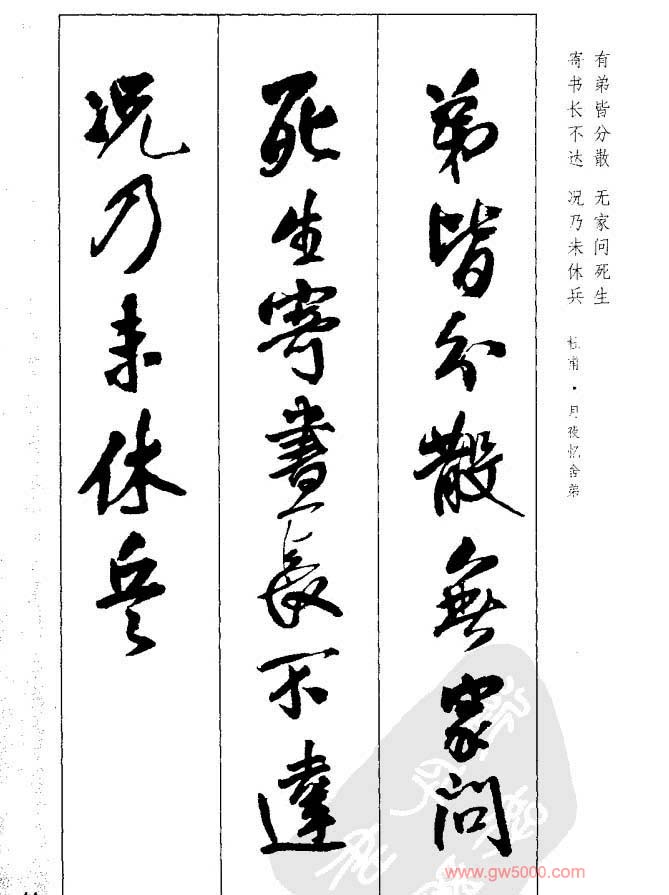 有弟皆分散 无家问死生
寄书长不达 况乃未休兵 杜甫·月夜忆舍弟
弟皆分散無家问
死生寄書長不達
况乃未休兵
www.gw5000.com